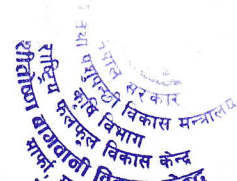 नेपाल सरकार
तथा पशुपन्छी विकास मन्त्रालय
कृषि विभाग
राष्ट्रिय फलफूल विकास केन्द्र
शीतोष्ण बागवानी विकास केन्द्र
मार्फा,